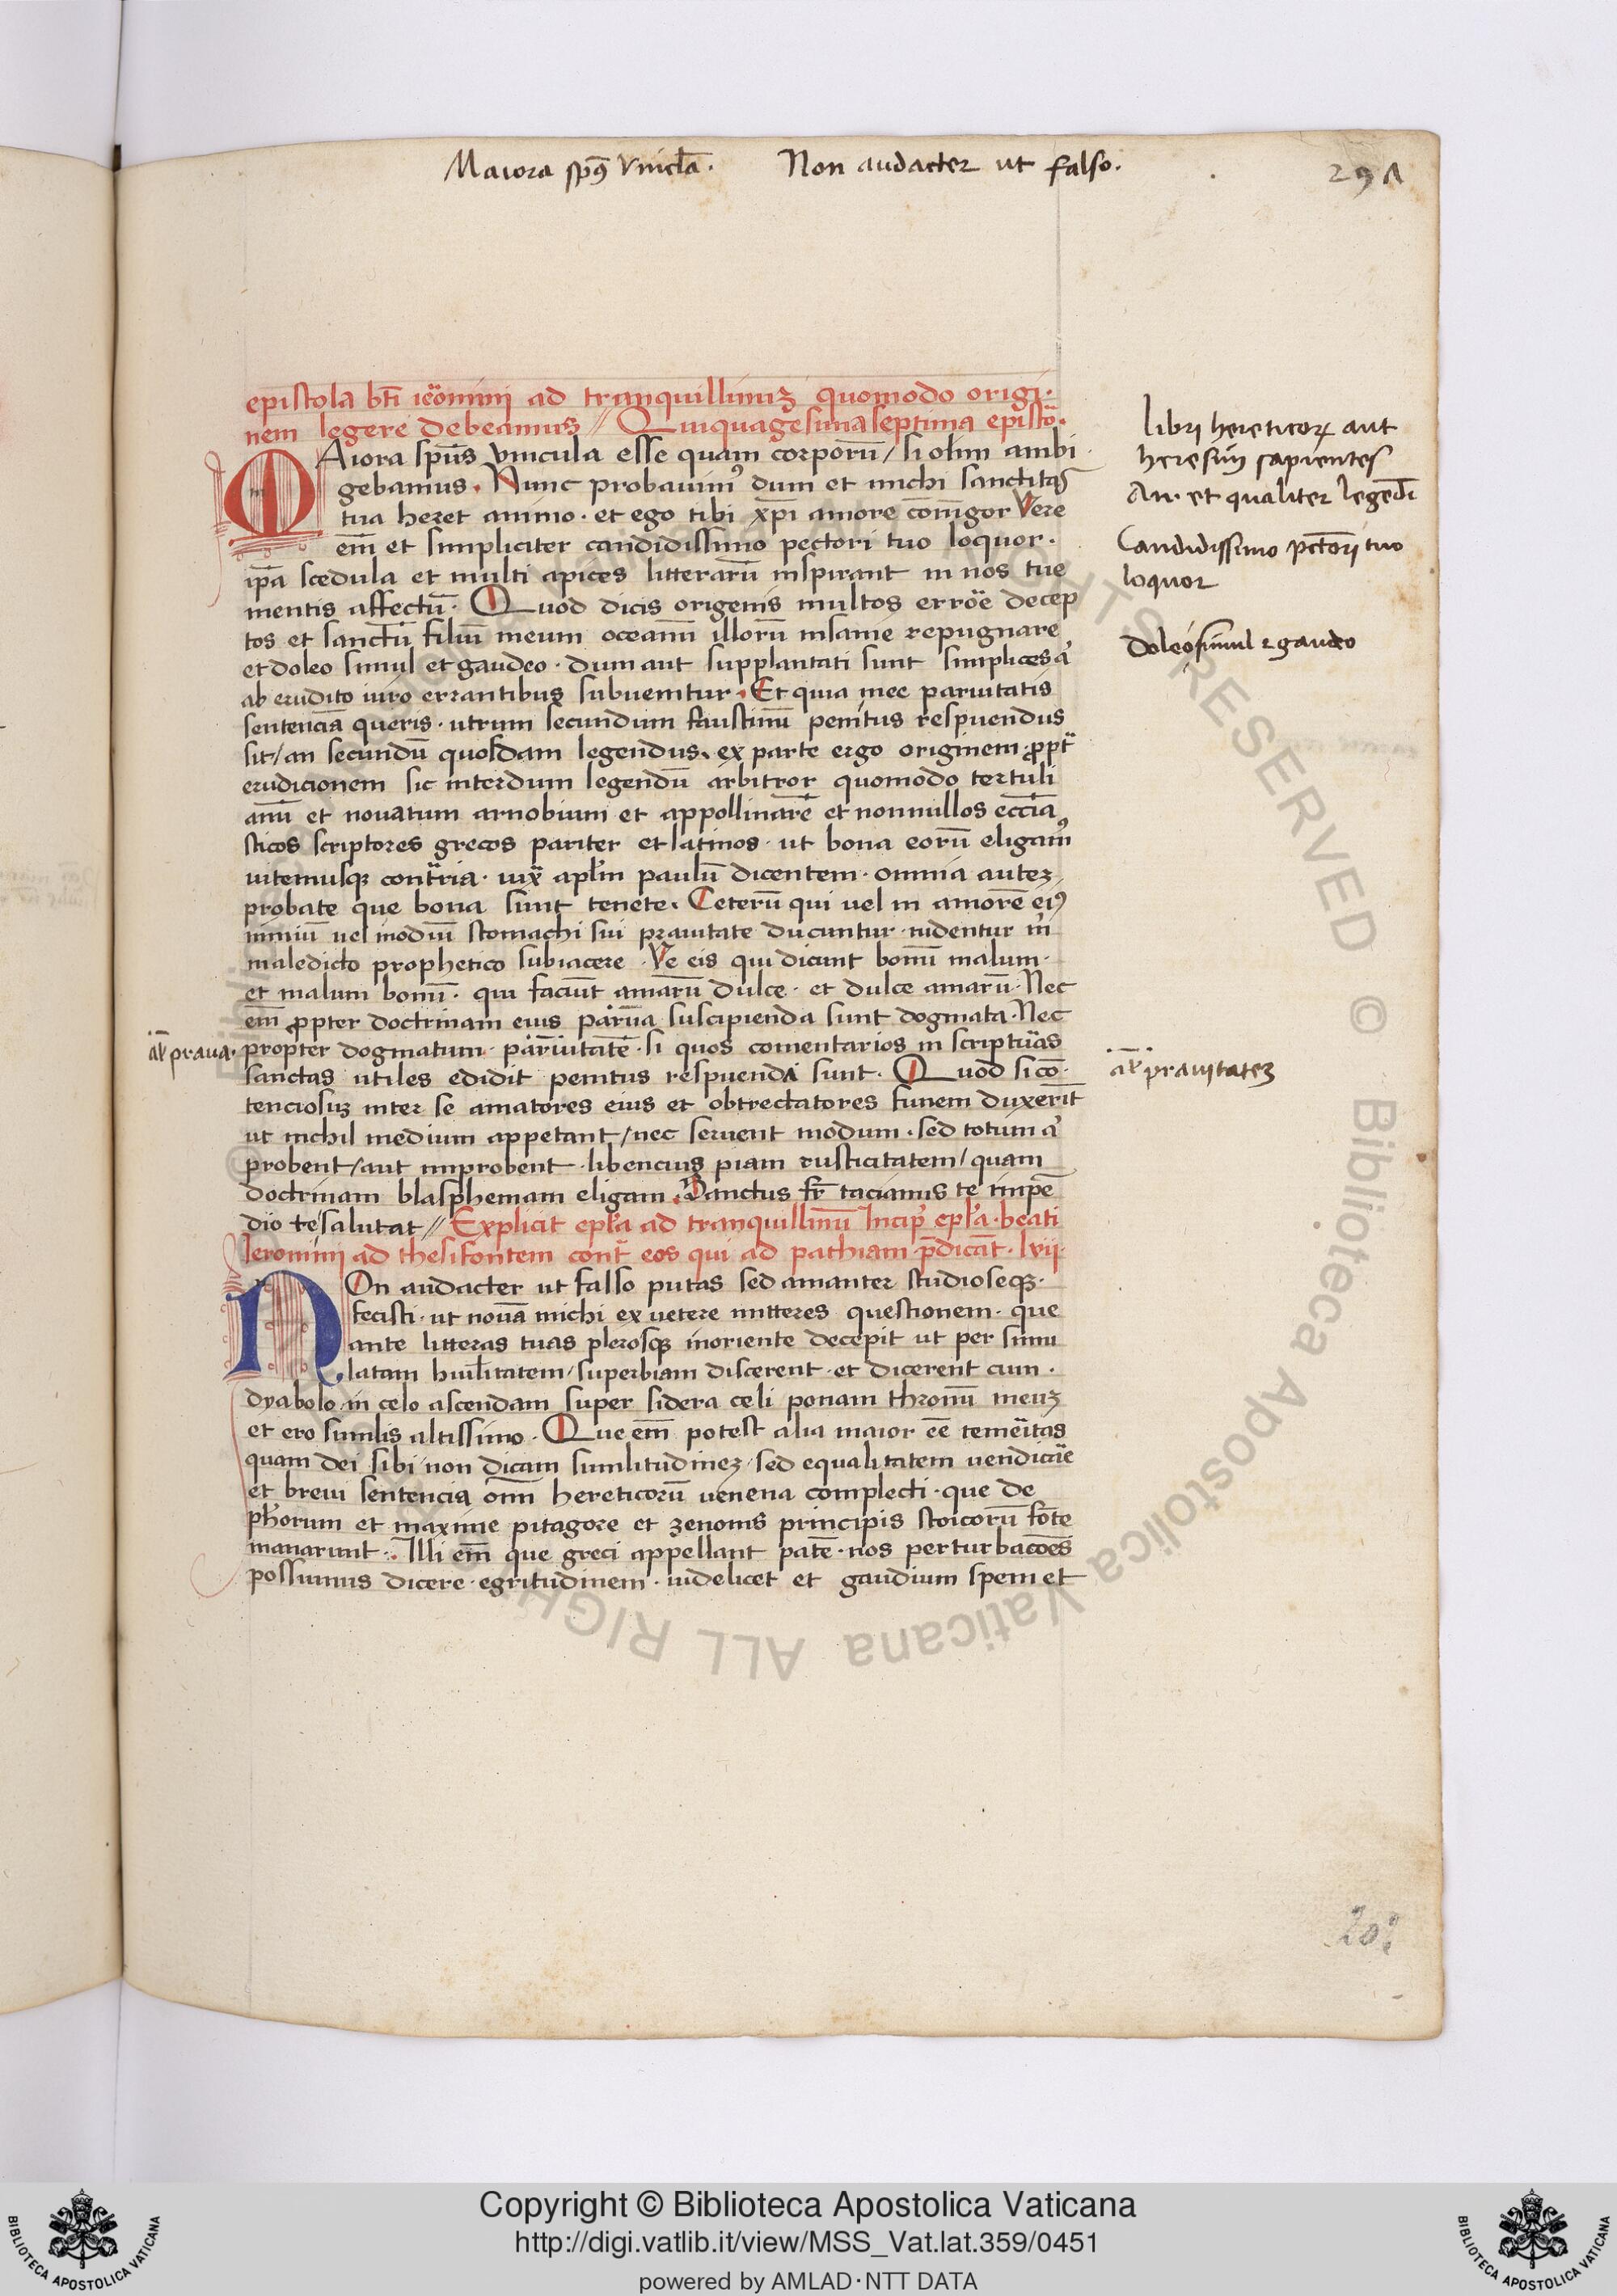 Maiora spūs vincl̄a. Non audacter ut falso. 291
epistola bt̄i ieronimi ad tranquillinuz quomodo origi
nem legere debeamus // Quiquagesima septima epistō.
MAiora spūs vincula esse quam corporū / si olim ambi
gebamus. Nunc probauim9 dum et michi sanctitas
tua heret animo. et ego tibi xp̄i amore con̄igor Vere
em̄ et simpliciter candidissimo pectori tuo loquor.
ip̄a scedula et multi apices litterarū inspirant in nos tue
mentis affectū. Quod dicis origenis multos errore decep
tos et sanctū filiū meum oceanū illorū insanie repugnare
et doleo simul et gaudeo. dum aut supplantati sunt simplices a'
ab erudito uiro errantibus subuenitur. Et quia mee paruitatis
sentenciā queris. utrum secundum faustinū penitus respuendus
sit / an secundū quosdam legendus. ex parte ergo originem propt
erudicionem sic interdum legendū arbitror quomodo tertuli
anū et nouatum arnobium et appollinarē et nonnullos eccīa
sticos scriptores grecos pariter et latinos. ut bona eorū eligam9
uitemusqz contraria. iux aplm̄ paulū dicentem. omnia autez
probate que bona sunt tenete. Ceterū qui uel in amorē ei9
nimiū uel inodiū stomachi sui prauitate ducuntur. uidentur m'
maledicto prophetico subiacere. Ve eis qui dicunt bonū malum.
et malum bonū. qui faciūt amarū dulce. et dulce amarū. Nec
em̄ propter doctrinam eius parua suscipienda sunt dogmata. Nec
al' praua. propter dogmatum. paruitatē. si quos comentarios in scripturas
sanctas utiles edidit penitus respuenda sunt. Quod si cō
tenciosuz inter se amatores eius et obtrectatores funem duxerit
ut nichil medium appetant / nec seruent modum. sed totum a'
probent / aut improbent. libencius piam rusticitatem / quam
doctrinam blasphemam eligam. Sanctus fr̄ tacianus te inpen
dio te salutat // Explicit ep̄la ad tranquillinū Incip̄ ep̄la. beati
Ieronimi ad thesifontem cont eos qui ad pathiam p̄dicāt. lvii.
NOn audacter ut falso putas sed amanter studioseqz.
fecisti. ut nouā michi ex uetere mitteres questionem. que
ante litteras tuas plerosqz inoriente decepit ut per simu
latam huilitatem / superbiam discerent. et dicerent cum.
dyabolo in celo ascendam super sidera celi ponam thronū meuz
et ero similis altissimo. Que em̄ potest alia maior eē temeritas
quam dei sibi non dicam similitudinez. sed equalitatem uendicare
et breui sentencia om̄i hereticorū uenena complecti. que de
ph'orum et maxime pitagore et zenonis principis stoicorū fōte
manarunt. Illi em̄ que greci appellant patē. nos perturbacōes
possumus dicere. egritudinem. uidelicet et gaudium spem et
libri hereticoꝝ aut
heresum sapientes
An. et qualiter legēdi
Candidissimo pectori tuo
loquor
doleo simul & gaudeo
al' prauitatez
Copyright © Biblioteca Apostolica Vaticana
http://digi.vatlib.it/view/MSS_Vat.lat.359/0451
powered by AMLAD·NTT DATA
BIBLIOTECA APOSTOLICA VATICANA
BIBLIOTECA APOSTOLICA VATICANA